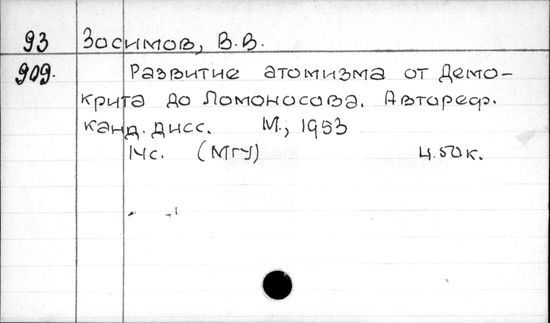 93 Зосимов, В.В.
909. Развитие атомизма от Демо-
крита до Ломоносова. Автореф.
канд. дисс. М., 1953
14с. (МГУ) 4.50к.